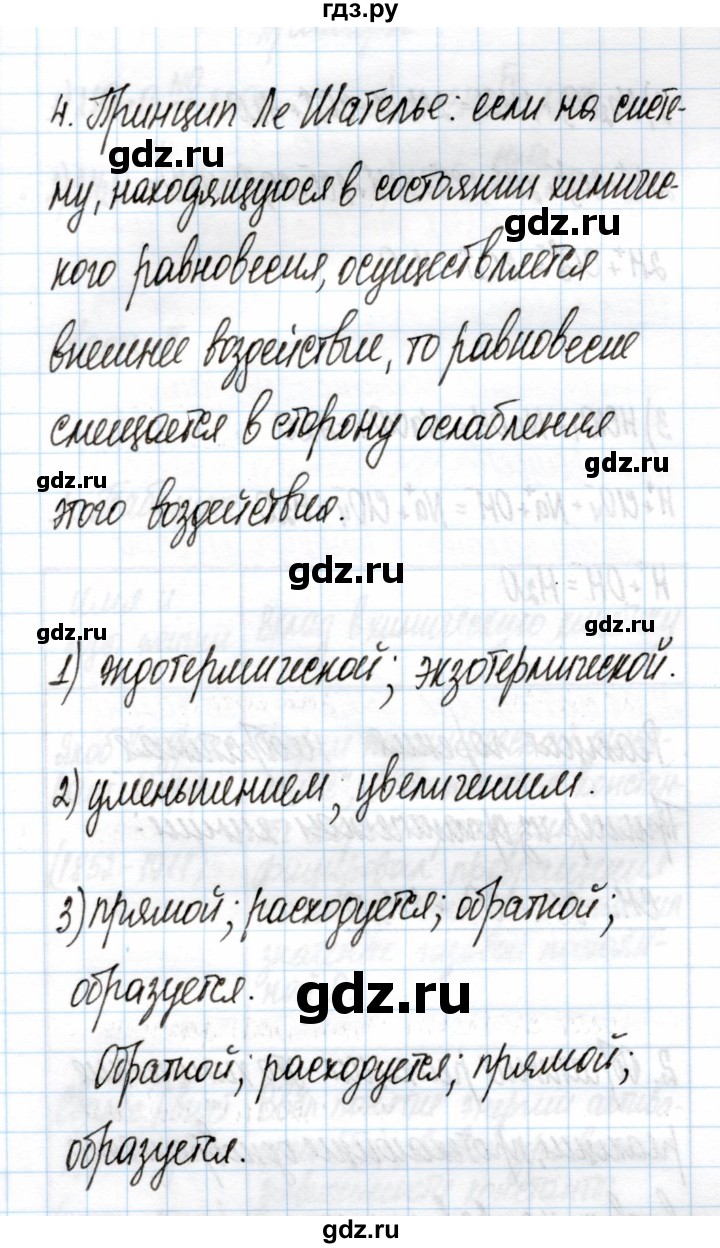 гдз.ру
4. Принцип Ле Шателье: если на систе-
gdz.ru
му, находящуюся в состоянии химичес-
gdz.ru
кого равновесия, осуществляется
внешнее воздействие, то равновесие
смещается в сторону ослабления
gdz.ru
gdz.ru
этого воздействия.
gdz.ru
gdz.ru
gdz.ru
1) эндотермической; экзотермической.
2) уменьшением, увеличением.
3) прямой; расходуется; обратной;
образуется.
gdz.ru
Обратной; расходуется; прямой;
образуется.
gdz.ru